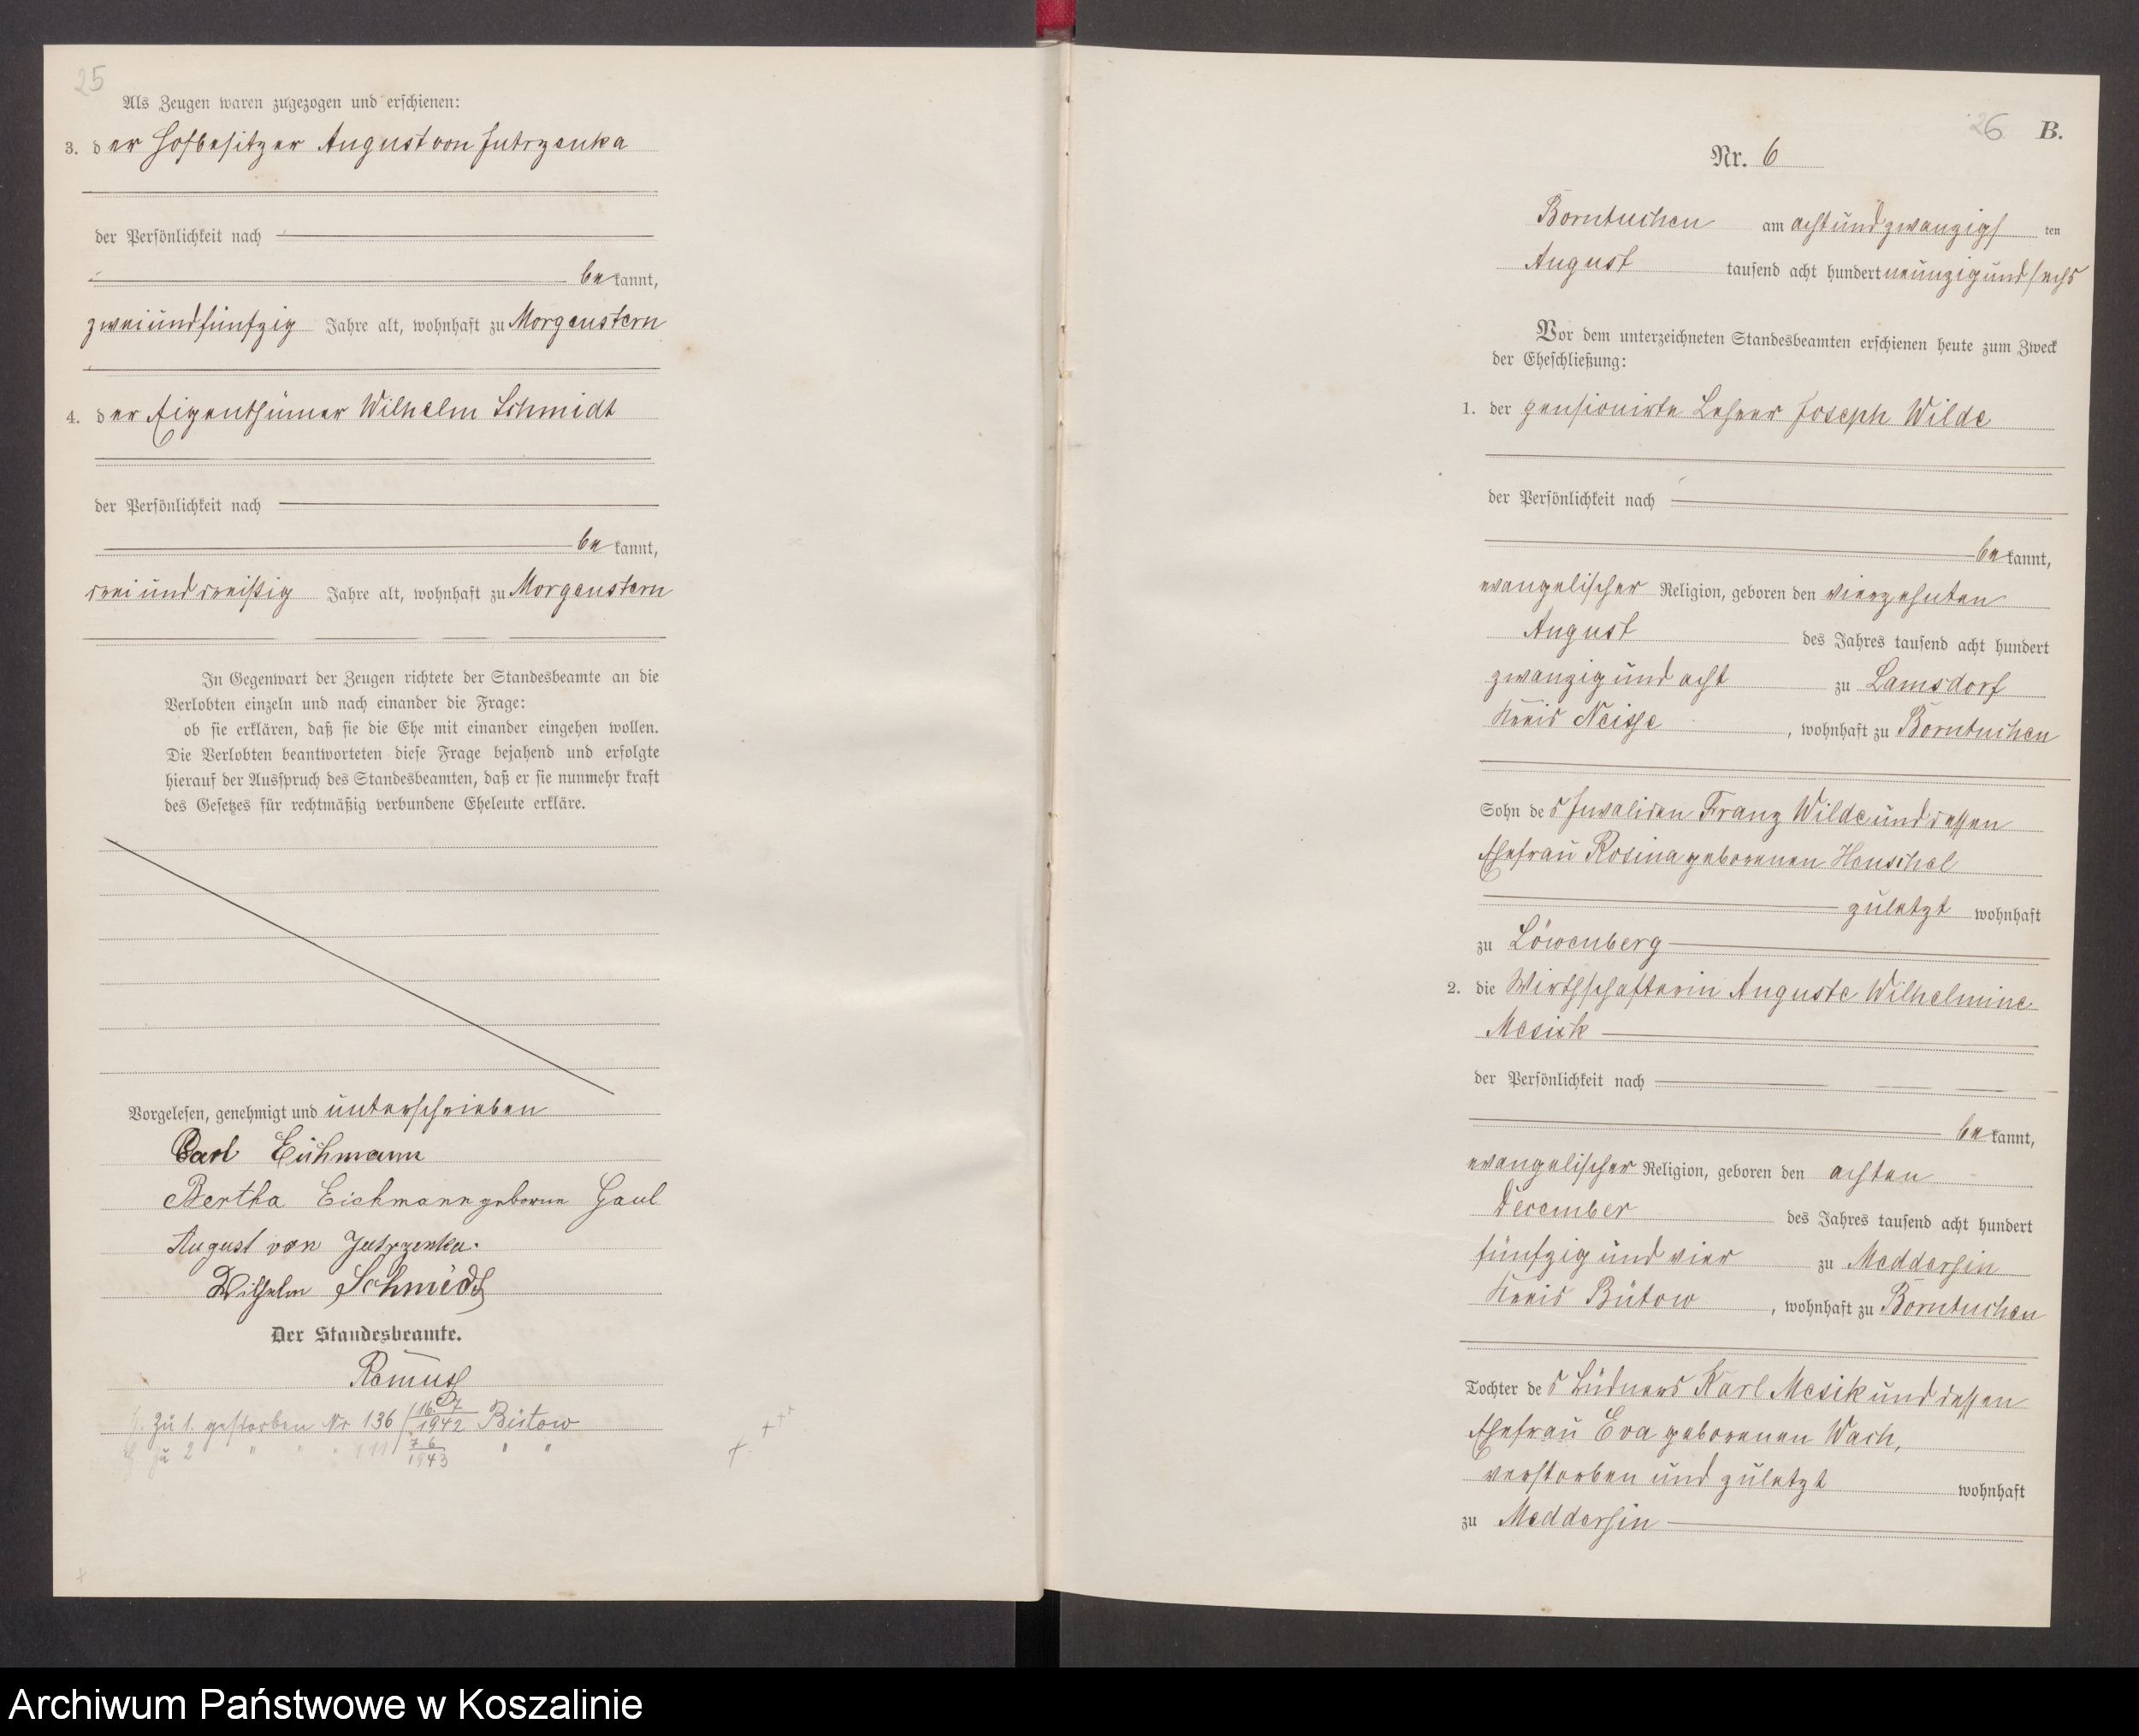 25
Als Zeugen waren zugezogen und erschienen:
3. der Hofbesitzer August von Jutrzenka
der Persönlichkeit nach
bekannt,
zweiundfünfzig Jahre alt, wohnhaft zu Morgenstern
4. der Eigenthümer Wilhelm Schmidt
der Persönlichkeit nach
bekannt,
dreiunddreißig Jahre alt, wohnhaft zu Morgenstern
In Gegenwart der Zeugen richtete der Standesbeamte an die
Verlobten einzeln und nach einander die Frage:
ob sie erklären, daß sie die Ehe mit einander eingehen wollen.
Die Verlobten beantworteten diese Frage bejahend und erfolgte
hierauf der Ausspruch des Standesbeamten, daß er sie nunmehr kraft
des Gesetzes für rechtmäßig verbundene Eheleute erkläre.
Vorgelesen, genehmigt und unterschrieben
Carl Eichmann
Bertha Eichmann geborne Gaul
August von Jutrzenka.
Wilhelm Schmidt
Der Standesbeamte.
zu 1. gestorben Nr 136 / 16.7 1942 Bütow
zu 2 " " " 111 / 7 6 1943 " "
26 B.
Nr. 6
Borntuchen am achtundzwanzigsten
August tausend acht hundert neunzig und sechs
Vor dem unterzeichneten Standesbeamten erschienen heute zum Zweck
der Eheschließung:
1. der pensionirte Lehrer Joseph Wilde
der Persönlichkeit nach
bekannt,
evangelischer Religion, geboren den vierzehnten
August des Jahres tausend acht hundert
zwanzig und acht zu Lamsdorf
Kreis Neisse, wohnhaft zu Borntuchen
Sohn des Invaliden Franz Wilde und dessen
Ehefrau Rosina geborenen Henschel
zuletzt wohnhaft
zu Löwenberg
2. die Wirthschafterin Auguste Wilhelmine
Mesick
der Persönlichkeit nach
bekannt,
evangelischer Religion, geboren den achten
December des Jahres tausend acht hundert
fünfzig und vier zu Meddersin
Kreis Bütow, wohnhaft zu Borntuchen
Tochter des Büdners Karl Mesik und dessen
Ehefrau Eva geborenen Wach,
verstorben und zuletzt wohnhaft
zu Meddersin
Archiwum Państwowe w Koszalinie